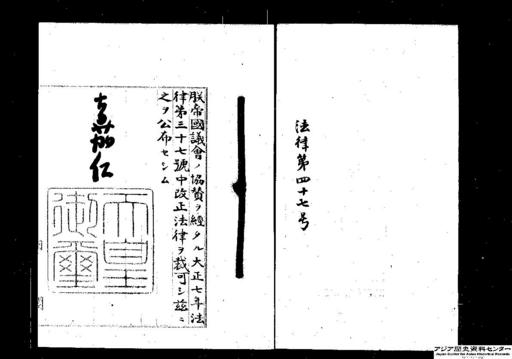 法律第四十七号
朕帝國議會ノ協賛ヲ經タル大正七年法
律第三十七號中改正法律ヲ裁可シ茲ニ
之ヲ公布セシム
嘉仁
天皇
御璽
アジア歴史資料センター
Japan Center for Asian Historical Records